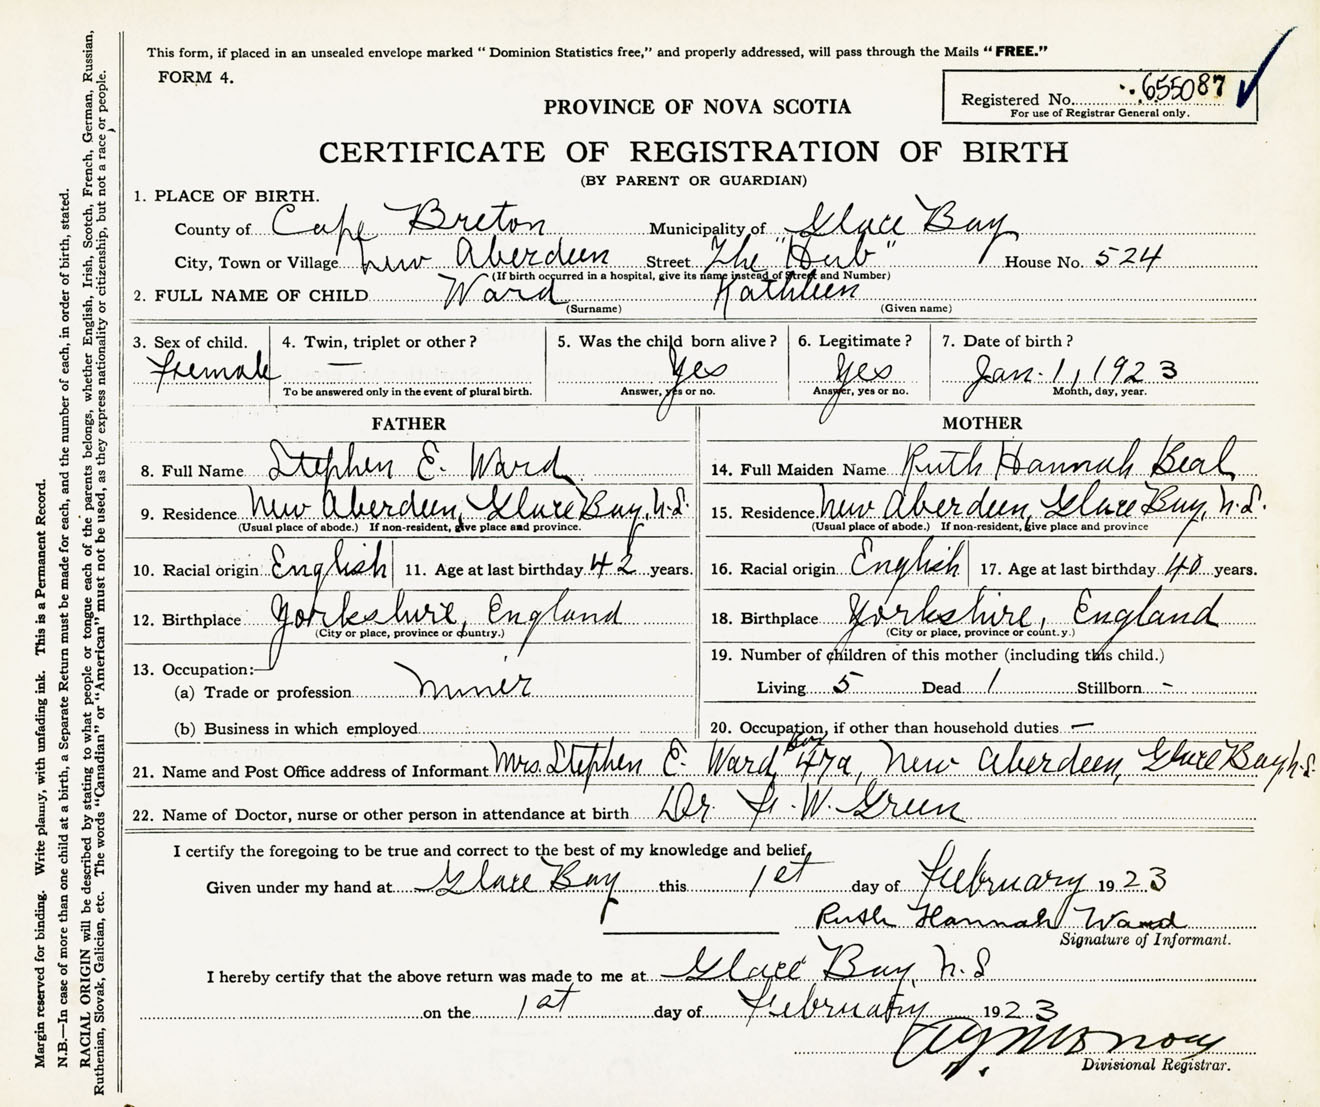 This form, if placed in an unsealed envelope marked "Dominion Statistics free," and properly addressed, will pass through the Mails "FREE."
FORM 4.
Registered No. 655087
For use of Registrar General only.
PROVINCE OF NOVA SCOTIA
CERTIFICATE OF REGISTRATION OF BIRTH
(BY PARENT OR GUARDIAN)
1. PLACE OF BIRTH.
County of Cape Breton Municipality of Glace Bay
City, Town or Village New Aberdeen Street The "Hub" House No. 524
(If birth occurred in a hospital, give its name instead of Street and Number)
2. FULL NAME OF CHILD Ward Kathleen
(Surname) (Given name)
3. Sex of child. 4. Twin, triplet or other? 5. Was the child born alive? 6. Legitimate? 7. Date of birth?
Female — Yes Yes Jan. 1, 1923
To be answered only in the event of plural birth. Answer, yes or no. Answer, yes or no. Month, day, year.
FATHER MOTHER
8. Full Name Stephen E. Ward 14. Full Maiden Name Ruth Hannah Beal
9. Residence New Aberdeen, Glace Bay, N.S. 15. Residence New Aberdeen, Glace Bay, N.S.
(Usual place of abode.) If non-resident, give place and province. (Usual place of abode.) If non-resident, give place and province
10. Racial origin English 11. Age at last birthday 42 years. 16. Racial origin English 17. Age at last birthday 40 years.
12. Birthplace Yorkshire, England 18. Birthplace Yorkshire, England
(City or place, province or country.) (City or place, province or count.y.)
13. Occupation:— 19. Number of children of this mother (including this child.)
(a) Trade or profession Miner Living 5 Dead 1 Stillborn -
(b) Business in which employed 20. Occupation, if other than household duties —
21. Name and Post Office address of Informant Mrs. Stephen E. Ward, Box 47a, New Aberdeen, Glace Bay, N.S.
22. Name of Doctor, nurse or other person in attendance at birth Dr. W. Green
I certify the foregoing to be true and correct to the best of my knowledge and belief,
Given under my hand at Glace Bay this 1st day of February 1923
Ruth Hannah Ward
Signature of Informant.
I hereby certify that the above return was made to me at Glace Bay N.S
on the 1st day of February 1923
Divisional Registrar.
Margin reserved for binding. Write plainly, with unfading ink. This is a Permanent Record.
N.B.—In case of more than one child at a birth, a Separate Return must be made for each, and the number of each, in order of birth, stated.
RACIAL ORIGIN will be described by stating to what people or tongue each of the parents belongs, whether English, Irish, Scotch, French, German, Russian,
Ruthenian, Slovak, Galician, etc. The words "Canadian" or "American" must not be used, as they express nationality or citizenship, but not a race or people.